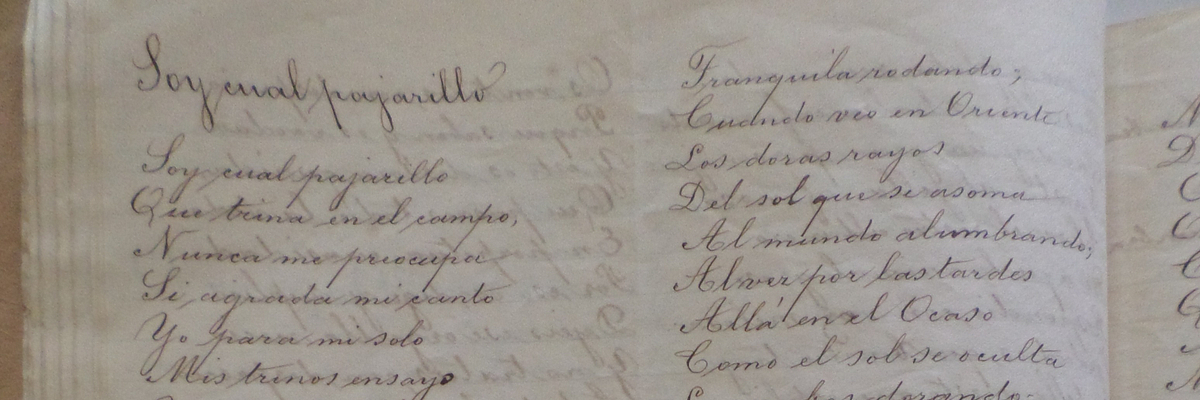 Soy cual pajarillo
Soy cual pajarillo
Que trina en el campo,
Nunca me preocupa
Si agrada mi canto
Yo para mi solo
Mis trinos ensayo
Tranquila rodando;
Cuando veo en Oriente
Los doras rayos
Del sol que se asoma
Al mundo alumbrando;
Al ver por las tardes
Allá en el Ocaso
Como el sol se oculta
dorando;